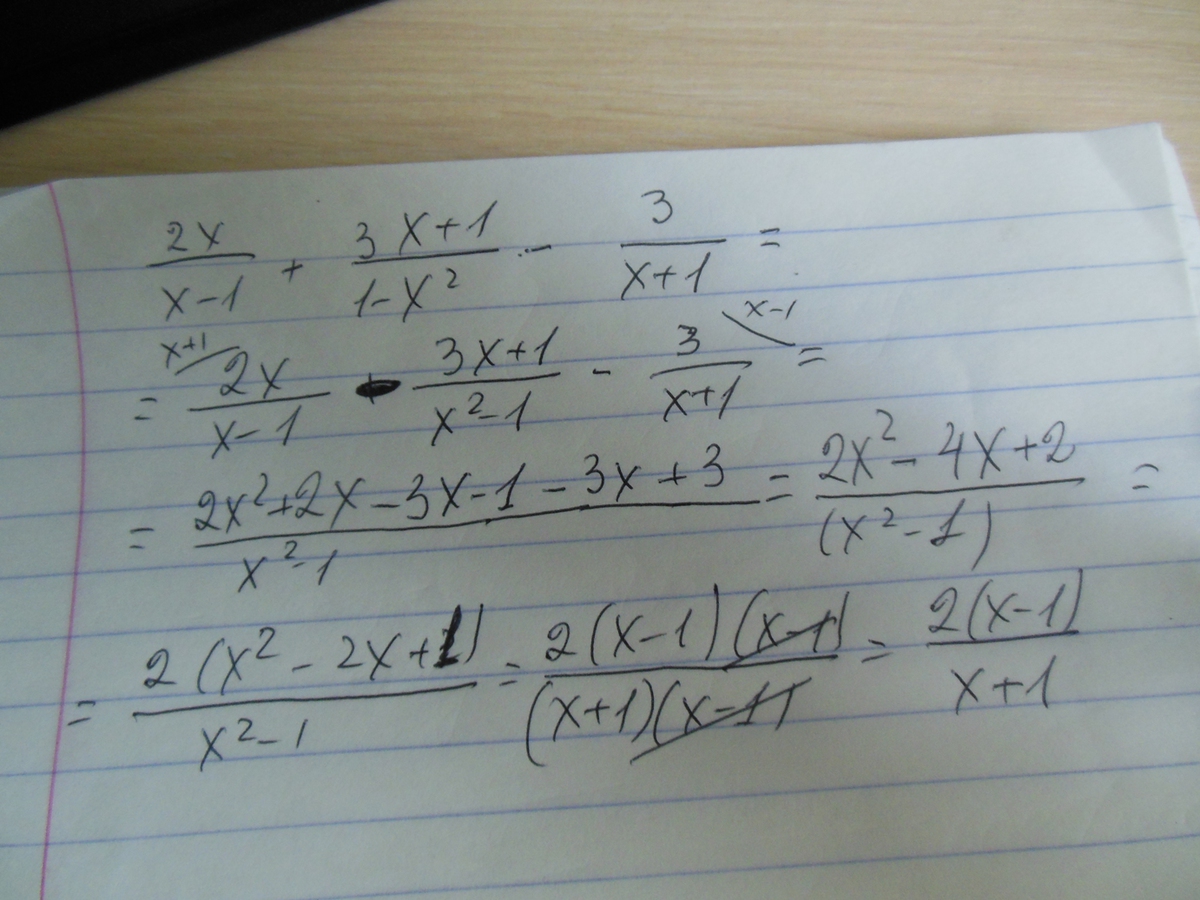 2x/(x-1) + (3x+1)/(1-x²) - 3/(x+1) =
= ˣ⁺¹ 2x/(x-1) - (3x+1)/(x²-1) - 3/(x+1) ˣ⁻¹ =
= (2x²+2x-3x-1-3x+3)/(x²-1) = (2x²-4x+2)/(x²-1) =
= 2(x²-2x+1)/(x²-1) = 2(x-1)(x-1)/((x+1)(x-1)) = 2(x-1)/(x+1)